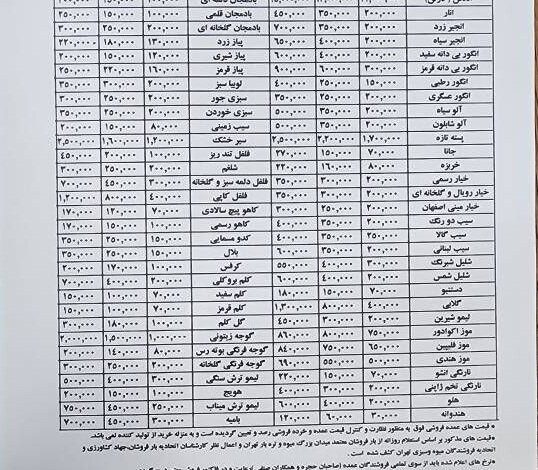 انار ۲۰۰,۰۰۰ ۳۵۰,۰۰۰ ۴۵۰,۰۰۰ بادمجان قلمی ۱۰۰,۰۰۰ ۱۵۰,۰۰۰ ۲۰۰,۰۰۰
انجیر زرد ۲۰۰,۰۰۰ ۳۵۰,۰۰۰ ۷۰۰,۰۰۰ بادمجان گلخانه ای ۲۰۰,۰۰۰ ۲۵۰,۰۰۰ ۳۰۰,۰۰۰
انجیر سیاه ۲۰۰,۰۰۰ ۴۰۰,۰۰۰ ۶۵۰,۰۰۰ پیاز زرد ۱۳۰,۰۰۰ ۱۸۰,۰۰۰ ۲۲۰,۰۰۰
انگور بی دانه سفید ۲۰۰,۰۰۰ ۴۰۰,۰۰۰ ۶۰۰,۰۰۰ پیاز شیری ۱۲۰,۰۰۰ ۱۵۰,۰۰۰ ۲۰۰,۰۰۰
انگور بی دانه قرمز ۳۰۰,۰۰۰ ۶۰۰,۰۰۰ ۹۰۰,۰۰۰ پیاز قرمز ۱۶۰,۰۰۰ ۲۲۰,۰۰۰ ۲۵۰,۰۰۰
انگور رطبی ۱۵۰,۰۰۰ ۲۵۰,۰۰۰ ۴۰۰,۰۰۰ لوبیا سبز ۲۰۰,۰۰۰ ۳۰۰,۰۰۰ ۳۵۰,۰۰۰
انگور عسگری ۲۰۰,۰۰۰ ۲۵۰,۰۰۰ ۳۵۰,۰۰۰ سبزی جور ۲۰۰,۰۰۰ ۲۵۰,۰۰۰ ۳۰۰,۰۰۰
آلو سیاه ۲۰۰,۰۰۰ ۳۵۰,۰۰۰ ۵۰۰,۰۰۰ سبزی خوردن ۲۰۰,۰۰۰ ۲۵۰,۰۰۰ ۳۵۰,۰۰۰
آلو شابلون ۲۰۰,۰۰۰ ۳۵۰,۰۰۰ ۵۰۰,۰۰۰ سیب زمینی ۸۰,۰۰۰ ۱۵۰,۰۰۰ ۲۰۰,۰۰۰
پسته تازه ۱,۷۰۰,۰۰۰ ۲,۲۰۰,۰۰۰ ۲,۵۰۰,۰۰۰ سیر خشک ۱,۲۰۰,۰۰۰ ۱,۶۰۰,۰۰۰ ۲,۵۰۰,۰۰۰
جانا ۷۰,۰۰۰ ۱۵۰,۰۰۰ ۲۷۰,۰۰۰ فلفل تند ریز ۱۰۰,۰۰۰ ۲۰۰,۰۰۰ ۴۵۰,۰۰۰
خربزه ۸۰,۰۰۰ ۱۶۰,۰۰۰ ۲۲۰,۰۰۰ شلغم ۲۰۰,۰۰۰ ۲۵۰,۰۰۰ ۳۰۰,۰۰۰
خیار رسمی ۲۰۰,۰۰۰ ۳۰۰,۰۰۰ ۳۵۰,۰۰۰ فلفل دلمه سبز و گلخانه ۳۰۰,۰۰۰ ۴۵۰,۰۰۰ ۷۰۰,۰۰۰
خیار رویال و گلخانه ای ۲۰۰,۰۰۰ ۳۰۰,۰۰۰ ۳۵۰,۰۰۰ فلفل کاپی ۴۰۰,۰۰۰ ۸۰۰,۰۰۰ ۱,۲۰۰,۰۰۰
خیار مینی اصفهان ۲۰۰,۰۰۰ ۳۰۰,۰۰۰ ۴۰۰,۰۰۰ کاهو پیچ سالادی ۷۰,۰۰۰ ۱۲۰,۰۰۰ ۱۷۰,۰۰۰
سیب دو رنگ ۲۰۰,۰۰۰ ۳۵۰,۰۰۰ ۴۰۰,۰۰۰ کاهو رسمی ۱۰۰,۰۰۰ ۱۵۰,۰۰۰ ۱۷۰,۰۰۰
سیب گالا ۲۵۰,۰۰۰ ۳۵۰,۰۰۰ ۵۰۰,۰۰۰ کدو مسمایی ۱۵۰,۰۰۰ ۲۵۰,۰۰۰ ۳۵۰,۰۰۰
سیب لبنانی ۲۰۰,۰۰۰ ۴۰۰,۰۰۰ ۶۰۰,۰۰۰ بلال ۱۵۰,۰۰۰ ۲۵۰,۰۰۰ ۳۵۰,۰۰۰
شلیل شبرنگ ۳۰۰,۰۰۰ ۴۰۰,۰۰۰ ۵۵۰,۰۰۰ کرفس ۱۰۰,۰۰۰ ۱۷۰,۰۰۰ ۲۰۰,۰۰۰
شلیل شمس ۲۰۰,۰۰۰ ۴۰۰,۰۰۰ ۶۰۰,۰۰۰ کلم بروکلی ۲۰۰,۰۰۰ ۴۰۰,۰۰۰ ۷۰۰,۰۰۰
دستنبو ۷۰,۰۰۰ ۱۵۰,۰۰۰ ۱۸۰,۰۰۰ کلم سفید ۷۰,۰۰۰ ۱۰۰,۰۰۰ ۱۵۰,۰۰۰
گلابی ۴۰۰,۰۰۰ ۸۰۰,۰۰۰ ۱,۳۰۰,۰۰۰ کلم قرمز ۷۰,۰۰۰ ۱۰۰,۰۰۰ ۱۵۰,۰۰۰
لیمو شیرین ۲۰۰,۰۰۰ ۳۰۰,۰۰۰ ۴۵۰,۰۰۰ گل کلم ۱۰۰,۰۰۰ ۱۸۰,۰۰۰ ۳۰۰,۰۰۰
موز اکوادور ۷۵۰,۰۰۰ ۸۰۰,۰۰۰ ۸۶۰,۰۰۰ گوجه زیتونی ۱,۰۰۰,۰۰۰ ۱,۵۰۰,۰۰۰ ۲,۰۰۰,۰۰۰
موز فلیپین ۶۵۰,۰۰۰ ۷۵۰,۰۰۰ ۸۴۰,۰۰۰ گوجه فرنگی بوته رس ۸۰,۰۰۰ ۱۴۰,۰۰۰ ۲۰۰,۰۰۰
موز هندی ۵۰۰,۰۰۰ ۵۵۰,۰۰۰ ۶۹۰,۰۰۰ گوجه فرنگی گلخانه ۲۰۰,۰۰۰ ۲۵۰,۰۰۰ ۳۰۰,۰۰۰
نارنگی انشو ۷۰,۰۰۰ ۱۵۰,۰۰۰ ۲۲۰,۰۰۰ لیمو ترش سنگی ۳۰۰,۰۰۰ ۴۰۰,۰۰۰ ۵۰۰,۰۰۰
نارنگی تخم ژاپنی ۲۰۰,۰۰۰ ۳۰۰,۰۰۰ ۴۰۰,۰۰۰ هویج ۱۰۰,۰۰۰ ۱۵۰,۰۰۰ ۲۰۰,۰۰۰
هلو ۲۰۰,۰۰۰ ۴۰۰,۰۰۰ ۶۰۰,۰۰۰ لیمو ترش میناب ۲۵۰,۰۰۰ ۴۵۰,۰۰۰ ۷۵۰,۰۰۰
هندوانه ۳۰,۰۰۰ ۶۰,۰۰۰ ۱۲۰,۰۰۰ بامیه ۳۰۰,۰۰۰ ۴۵۰,۰۰۰ ۷۰۰,۰۰۰
* قیمت های عمده فروشی فوق به منظور نظارت و کنترل قیمت عمده و خرده فروشی رصد و تعیین گردیده است و به منزله خرید از تولید کننده نمی باشد.
* قیمت های مذکور بر اساس استعلام روزانه از بار فروشان معتمد میدان بزرگ میوه و تره بار تهران و اعمال نظر کارشناسان اتحادیه بار فروشان،جهاد کشاورزی و
اتحادیه فروشندگان میوه وسبزی تهران کشف شده است.